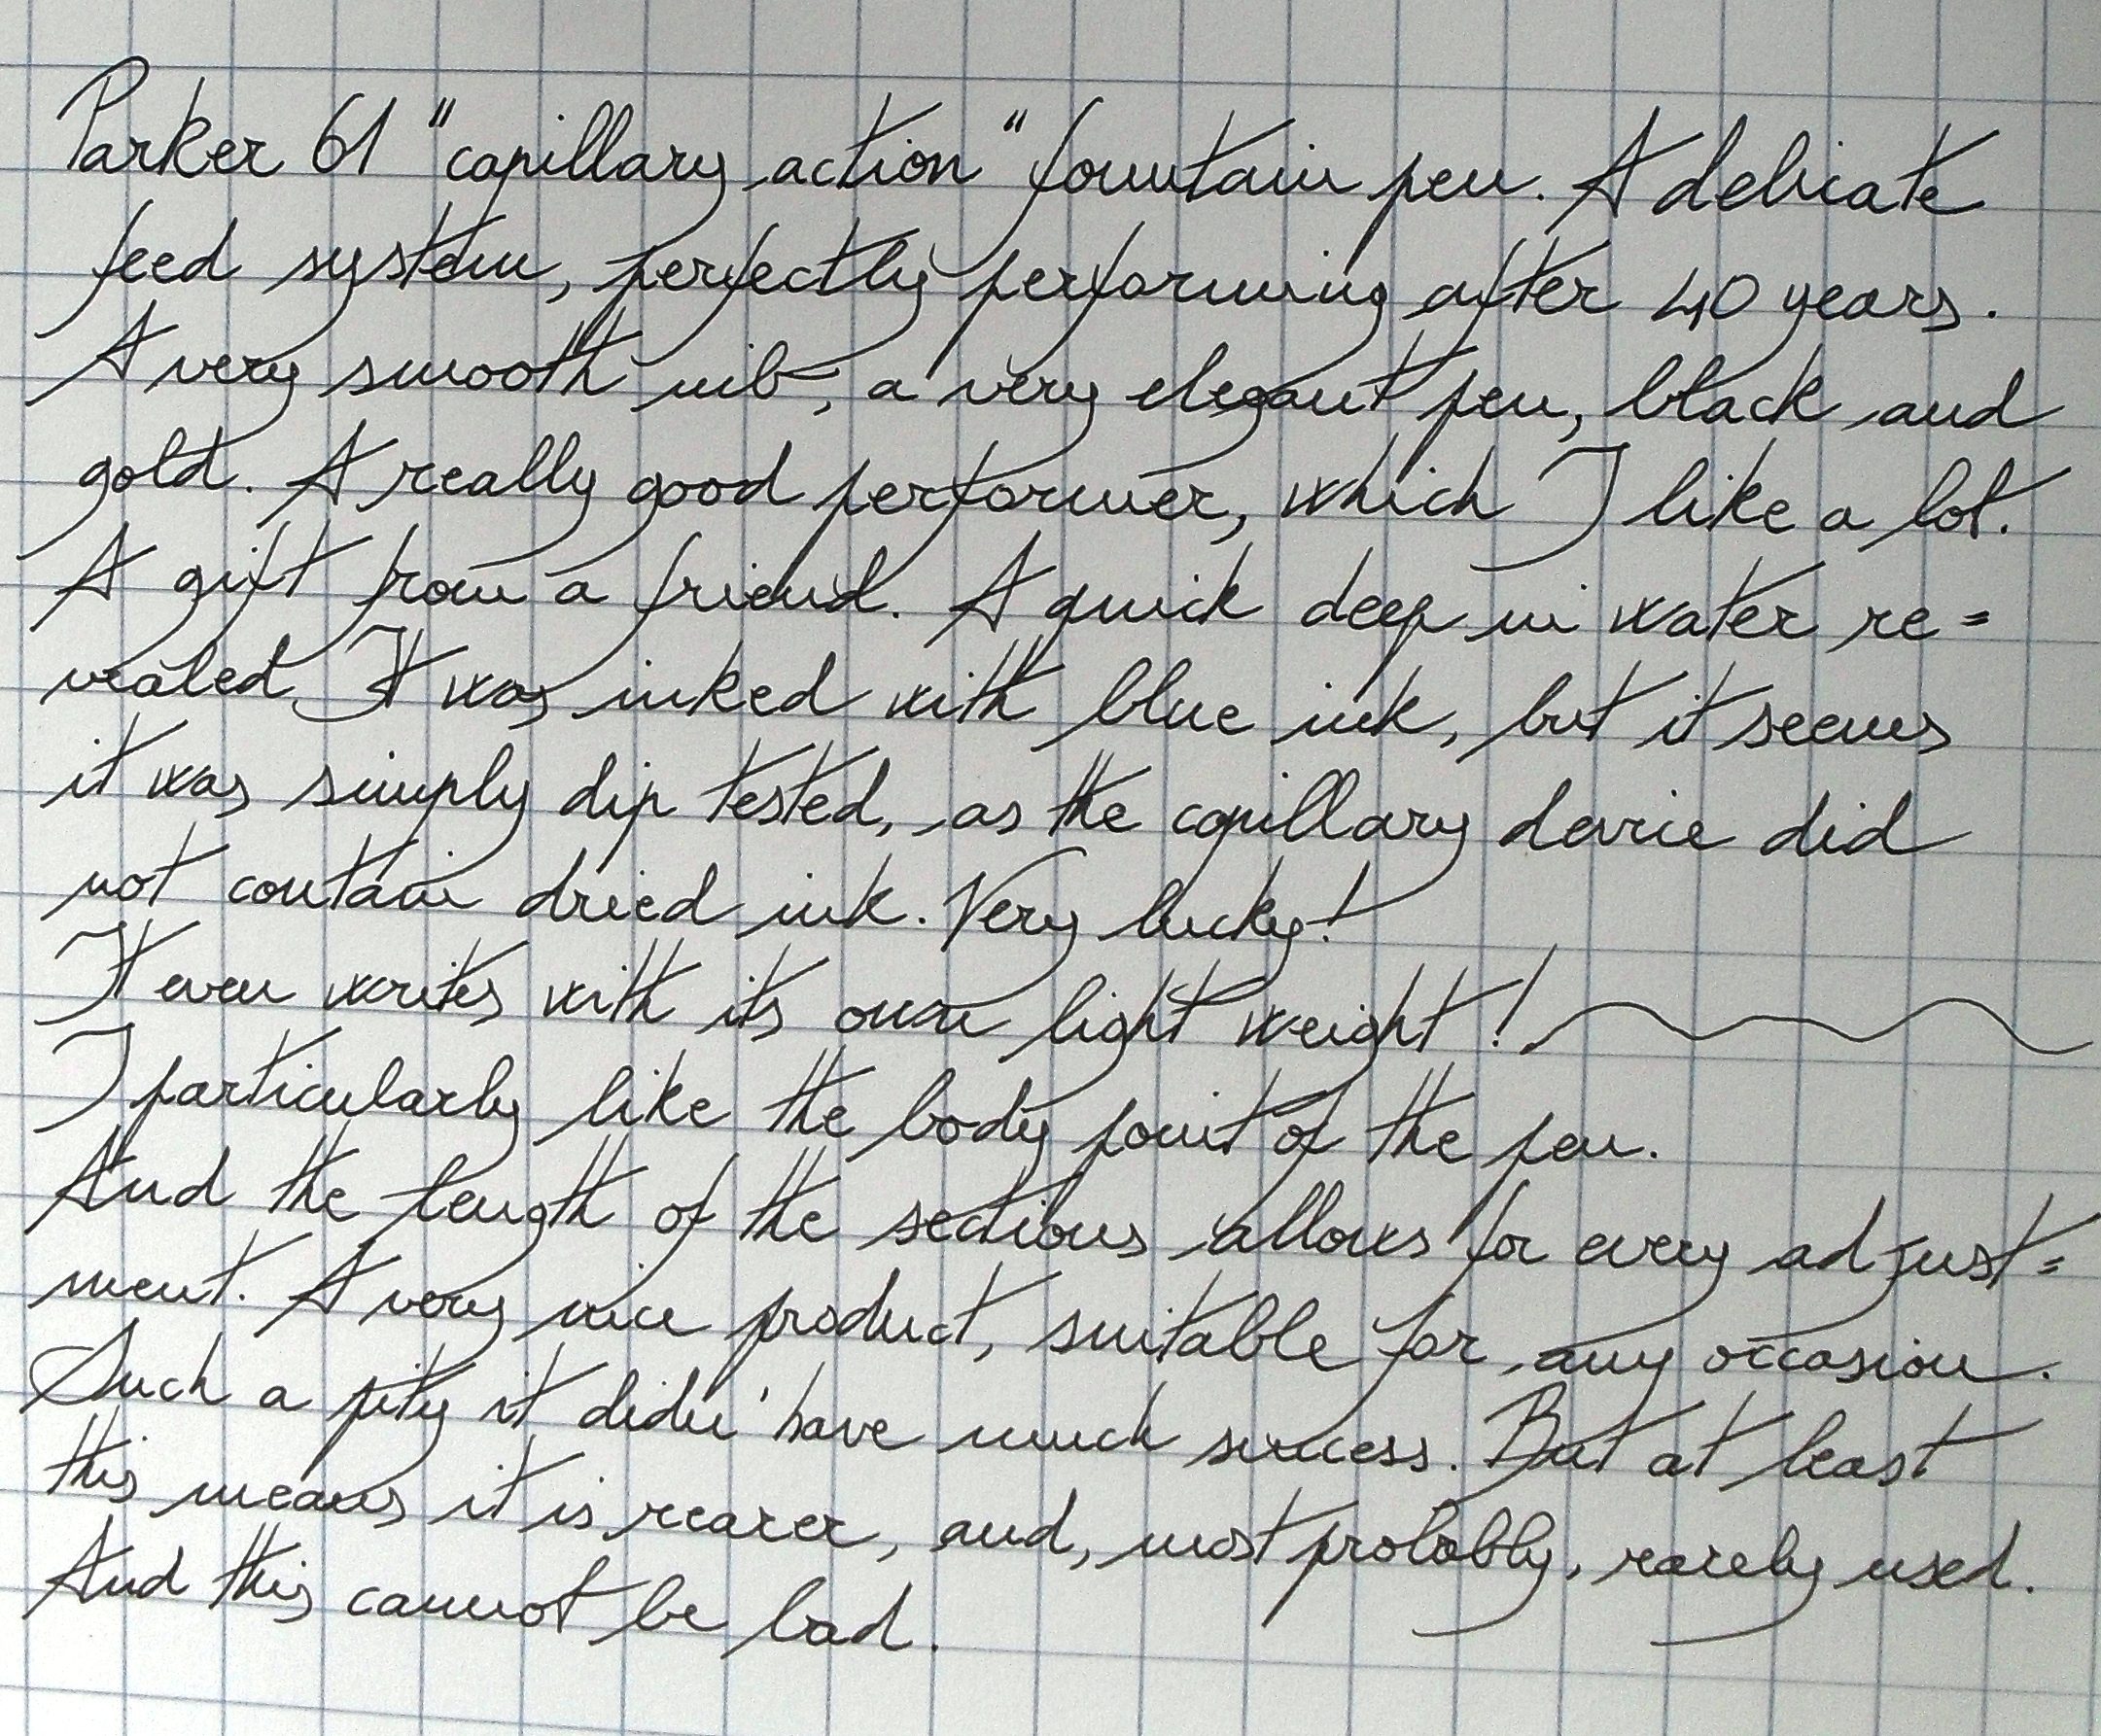 Parker 61 "capillary action" fountain pen. A delicate
feed system, perfectly performing after 40 years.
A very smooth nib, a very elegant pen, black and
gold. A really good performer, which I like a lot.
A gift from a friend. A quick deep in water re=
vealed It was inked with blue ink, but it seems
it was simply dip tested, as the capillary device did
not contain dried ink. Very lucky!
It even writes with its own light weight!
I particularly like the body point of the pen.
And the length of the sections allows for every adjust=
ment. A very nice product, suitable for any occasion.
Such a pity it didn' have much success. But at least
this means it is rearer, and, most probably, rarely used.
And this cannot be bad.